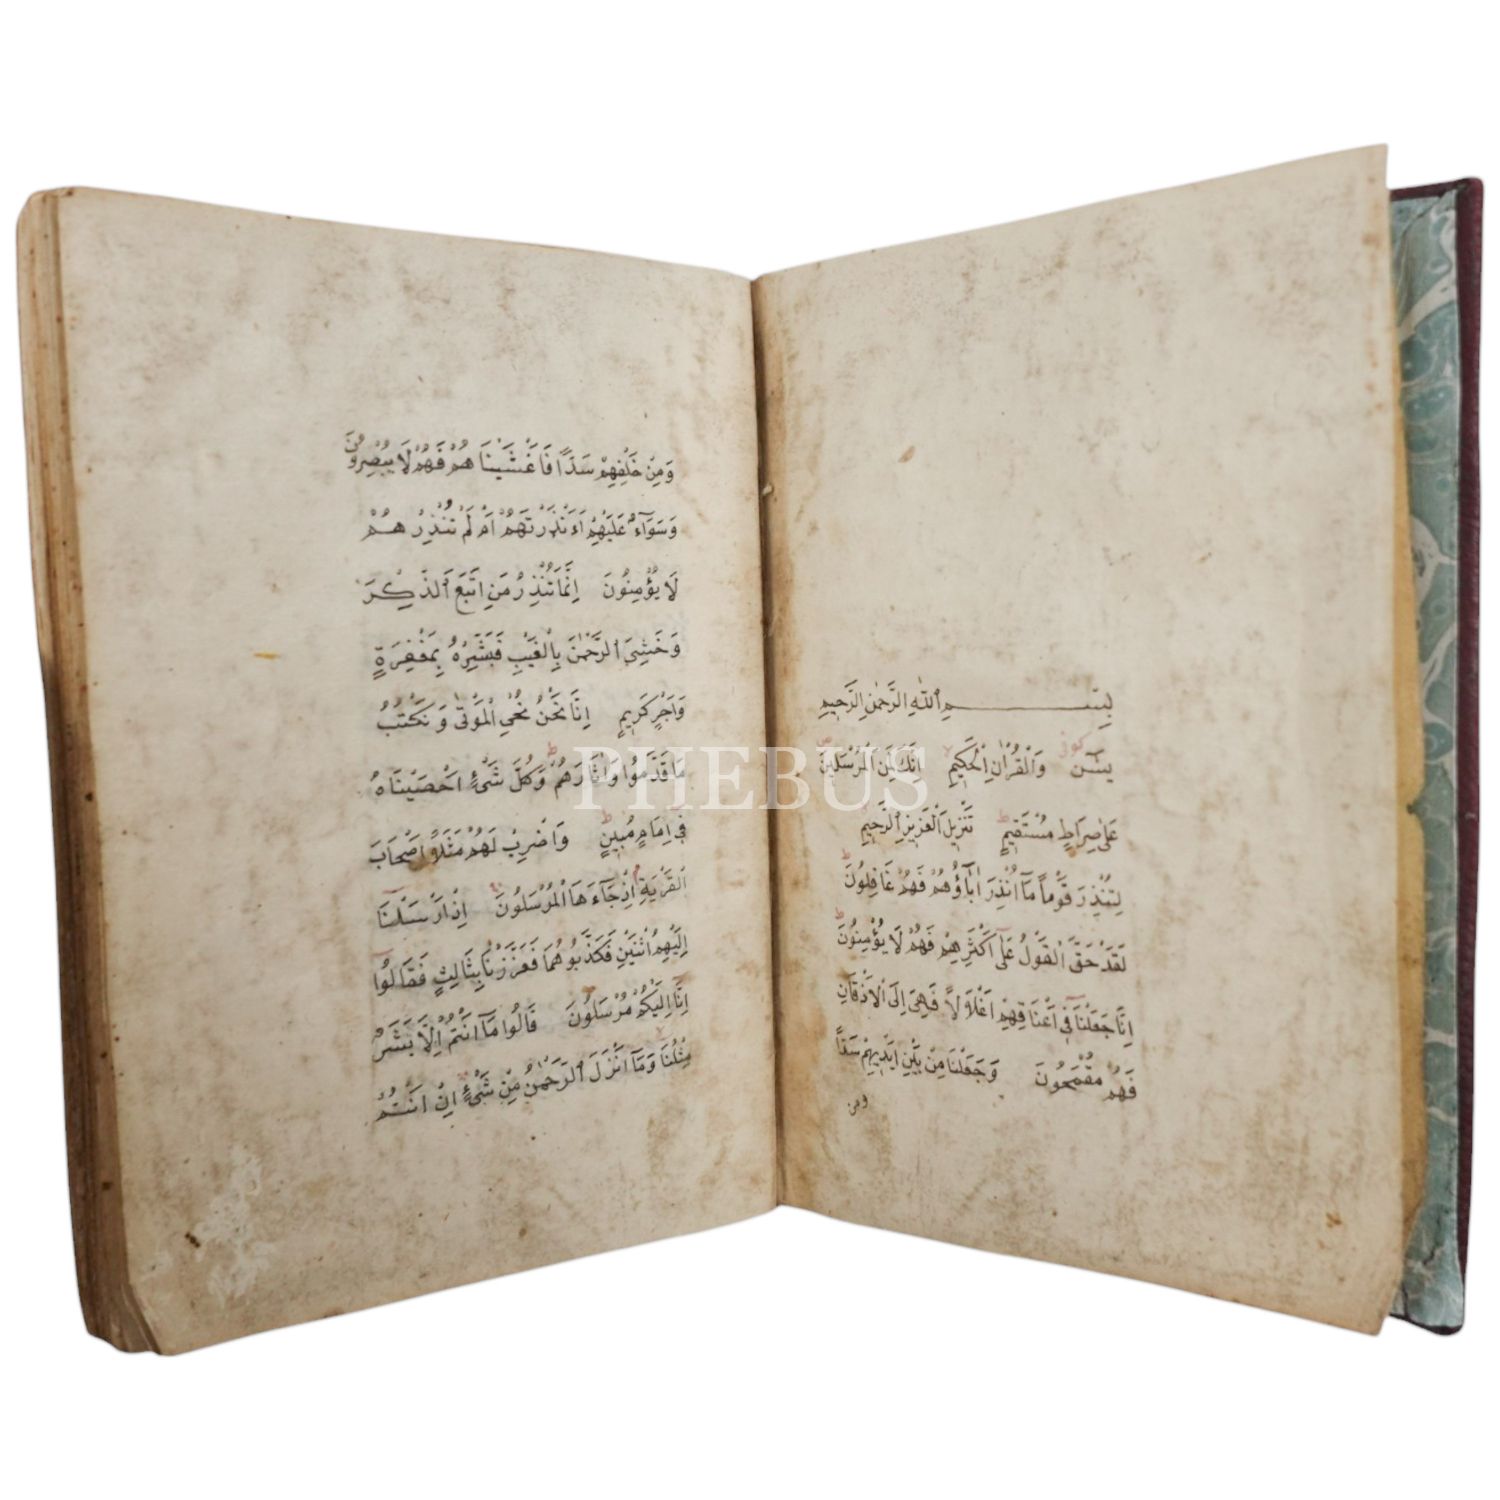 بِسْمِ اللّٰهِ الرَّحْمٰنِ الرَّحِيمِ
كوفى
يٰسٓ وَالْقُرْاٰنِ الْحَكِيمِ اِنَّكَ لَمِنَ الْمُرْسَلِينَ
عَلٰى صِرَاطٍ مُسْتَقِيمٍ تَنْزِيلَ الْعَزِيزِ الرَّحِيمِ
لِتُنْذِرَ قَوْمًا مَٓا اُنْذِرَ اٰبَٓاؤُهُمْ فَهُمْ غَافِلُونَ
لَقَدْ حَقَّ الْقَوْلُ عَلٰٓى اَكْثَرِهِمْ فَهُمْ لَا يُؤْمِنُونَ
اِنَّا جَعَلْنَا فِٓى اَعْنَاقِهِمْ اَغْلَالًا فَهِىَ اِلَى الْاَذْقَانِ
فَهُمْ مُقْمَحُونَ وَجَعَلْنَا مِنْ بَيْنِ اَيْدِيهِمْ سَدًّا
ومن
وَمِنْ خَلْفِهِمْ سَدًّا فَاَغْشَيْنَاهُمْ فَهُمْ لَا يُبْصِرُونَ
وَسَوَٓاءٌ عَلَيْهِمْ ءَاَنْذَرْتَهُمْ اَمْ لَمْ تُنْذِرْهُمْ
لَا يُؤْمِنُونَ اِنَّمَا تُنْذِرُ مَنِ اتَّبَعَ الذِّكْرَ
وَخَشِىَ الرَّحْمٰنَ بِالْغَيْبِ فَبَشِّرْهُ بِمَغْفِرَةٍ
وَاَجْرٍ كَرِيمٍ اِنَّا نَحْنُ نُحْىِ الْمَوْتٰى وَنَكْتُبُ
مَا قَدَّمُوا وَاٰثَارَهُمْ وَكُلَّ شَىْءٍ اَحْصَيْنَاهُ
فِٓى اِمَامٍ مُبِينٍ وَاضْرِبْ لَهُمْ مَثَلًا اَصْحَابَ
الْقَرْيَةِ اِذْ جَٓاءَهَا الْمُرْسَلُونَ اِذْ اَرْسَلْنَٓا
اِلَيْهِمُ اثْنَيْنِ فَكَذَّبُوهُمَا فَعَزَّزْنَا بِثَالِثٍ فَقَالُٓوا
اِنَّٓا اِلَيْكُمْ مُرْسَلُونَ قَالُوا مَٓا اَنْتُمْ اِلَّا بَشَرٌ
مِثْلُنَا وَمَٓا اَنْزَلَ الرَّحْمٰنُ مِنْ شَىْءٍ اِنْ اَنْتُمْ
PHEBUS